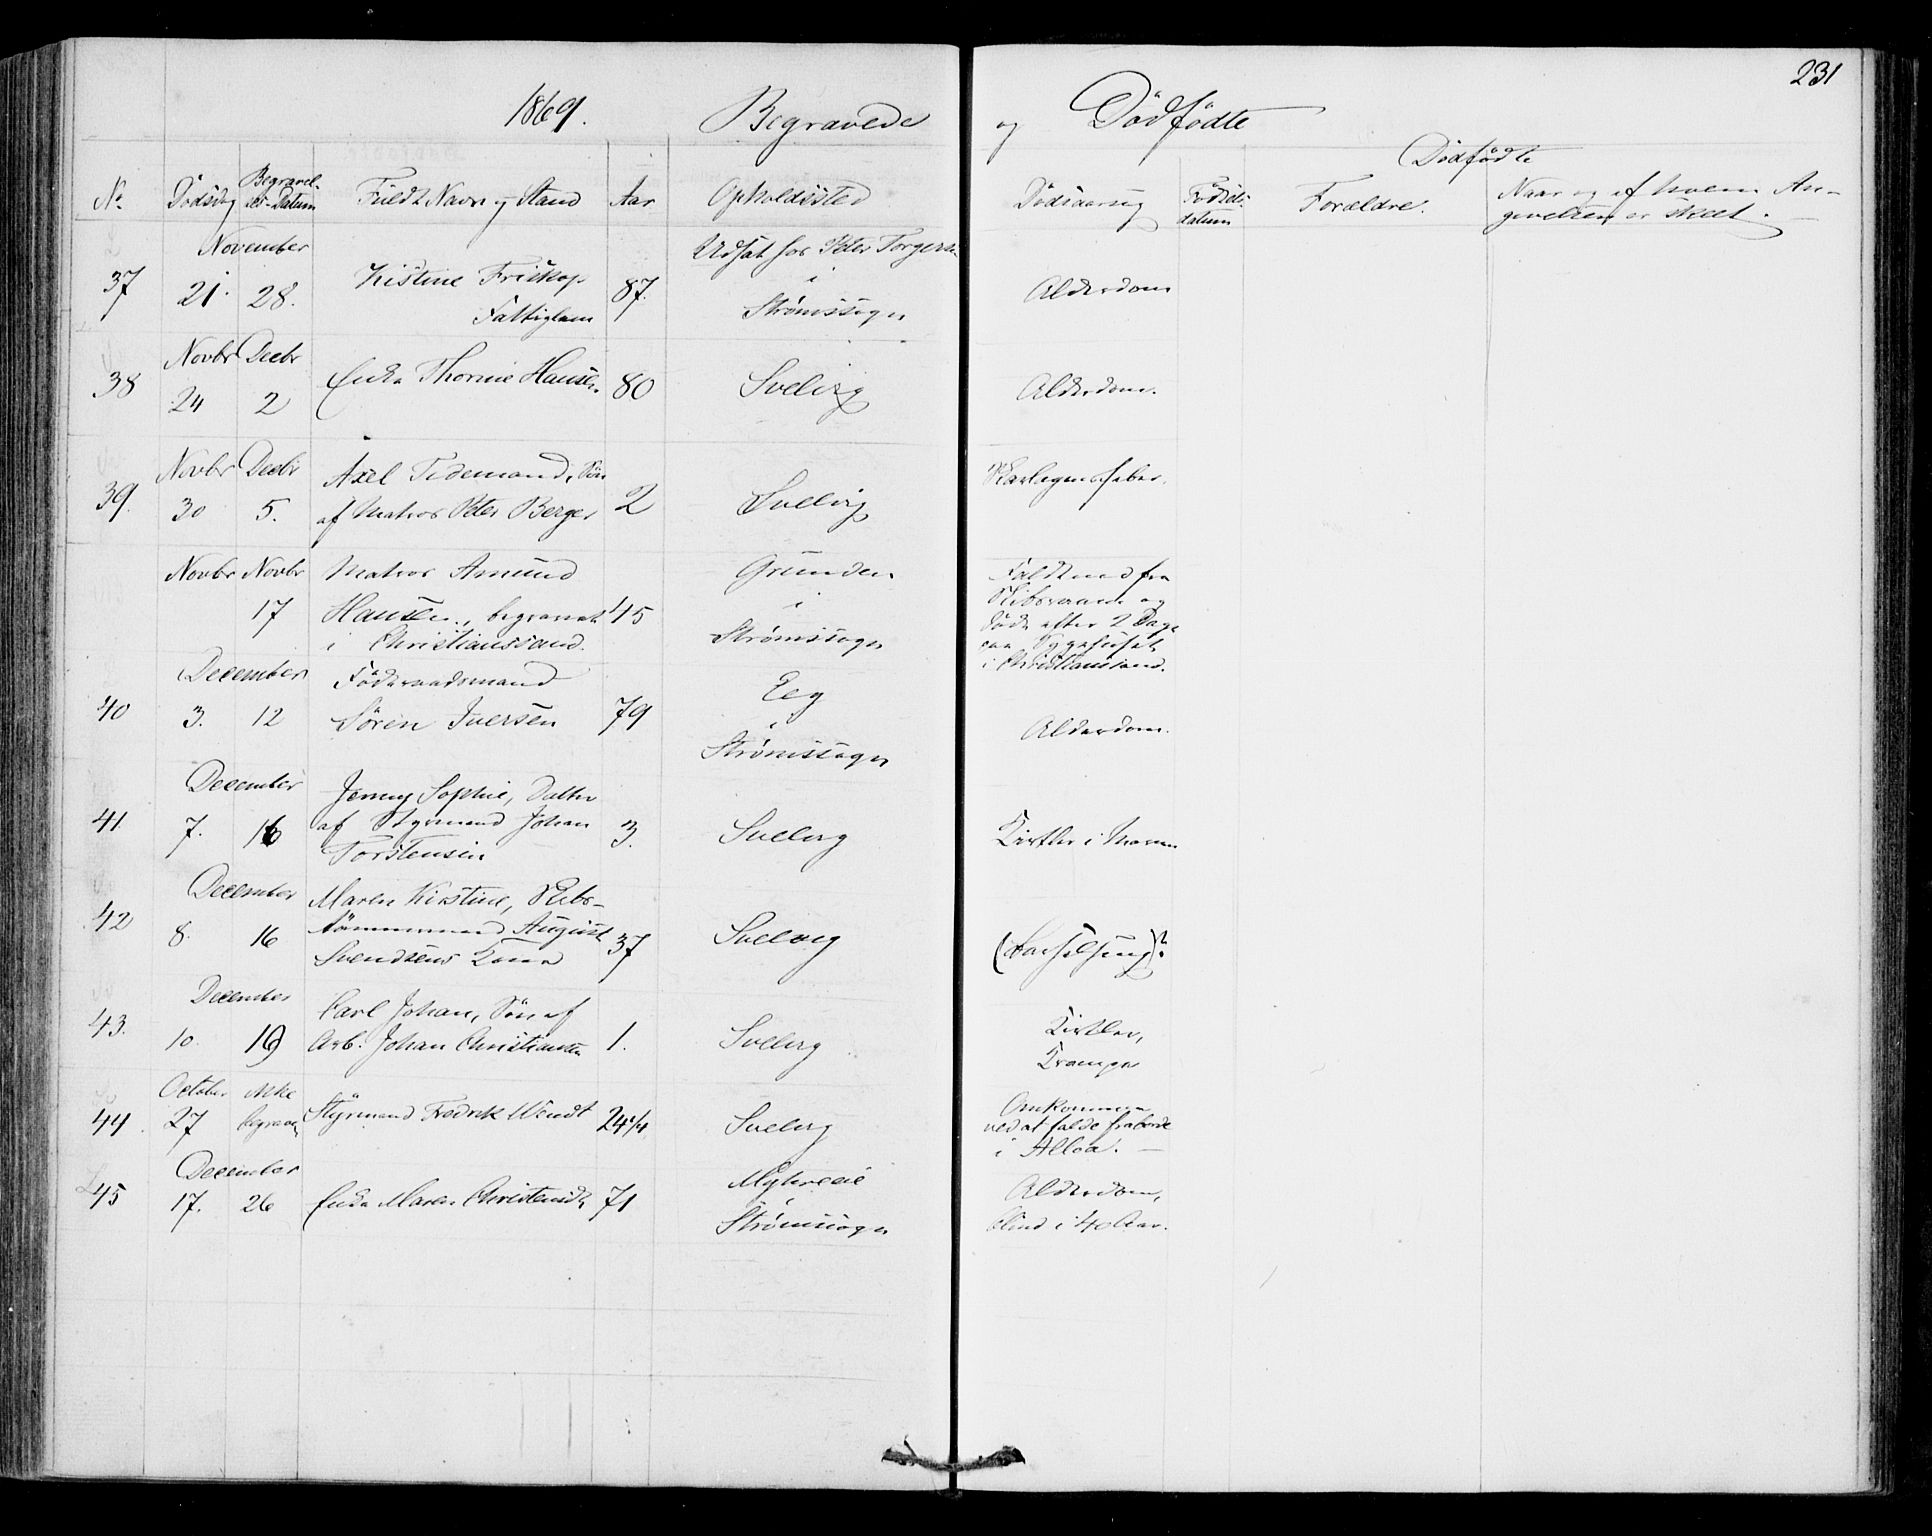 231
1869. Begravede og Dødfødte
Dødfødte
No Dødsdag Begravelses-Datum Fuldt Navn og Stand Aar Opholdssted Dødsaarsag Fødselsdatum Forældre. Naar og af hvem Angivelsen er skeet.
November
37 21. 28. Kistine Friskop Fattiglem 87. Udsat hos Peter Torgersen i Strømssogn Alderdom
Novbr Decbr
38 24 2 Enke Thorine Hansen. 80 Svelvig Alderdom.
Novbr Decbr
39. 30 5. Axel Tidemand, Søn
af Matros Peter Berger 2 Svelvig Skarlagensfeber.
Novbr Novbr Matros Amund
17 Hansen, begravet 45
i Christianssand.
Grunden
i
Strømssogn
Faldt ned fra
Skibsraaen og
døde efter 2 Dage
paa Sygehuset
i Christianssand.
December Føderaadsmand
40 3. 12 Søren Iversen 79
Eeg
i
Strømssogn
Alderdom.
December Jenny Sophie, Datter
41. 7. 16 af Styrmand Johan 3. Svelvig Kirtler i Maven
Torstensen
December Maren Kirstine, Skibs-
42 8. 16 tømmermand August 37 Svelvig (Barselseng)?
Svendsens Kone
December Carl Johan, Søn af
43. 10. 19 Arb. Johan Christiansen 1. Svelvig Kirtler,
Krampe
October Ikke
44. 27 begravet Styrmand Fredrik Wendt 24 1/4 Svelvig
Omkommen
ved at falde fraborde
i Alloa. —
December
45 17. 26 Enke Maren Christensdr 71
Myhreeie
i
Strømssogn
Alderdom,
blind i 40 Aar.